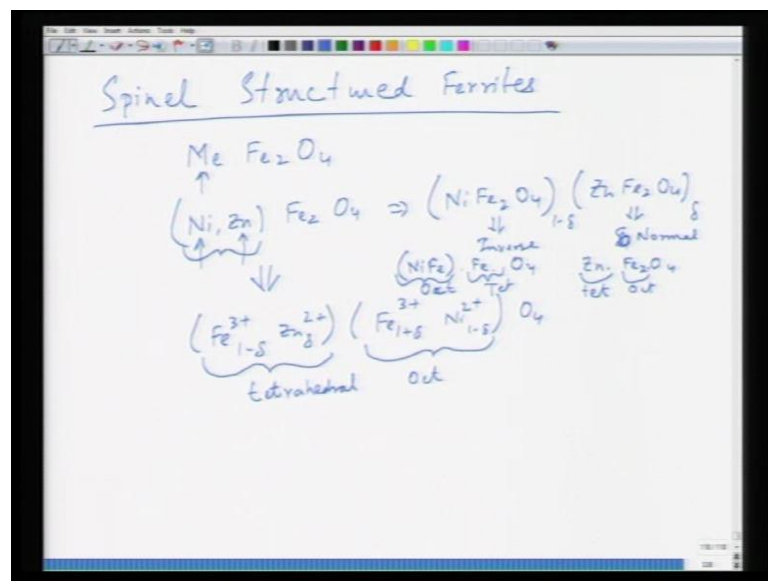 File Edit View Insert Actions Tools Help
Spinel Structured Ferrites
Me Fe₂ O₄
(Ni, Zn) Fe₂ O₄ ⇒ (Ni Fe₂ O₄)₁₋δ (Zn Fe₂ O₄)δ
Inverse Normal
(NiFe) Fe O₄ Zn. Fe₂O₄
Oct Tet tet Oct
(Fe³⁺₁₋δ Zn²⁺δ) (Fe³⁺₁₊δ Ni²⁺₁₋δ) O₄
tetrahedral Oct